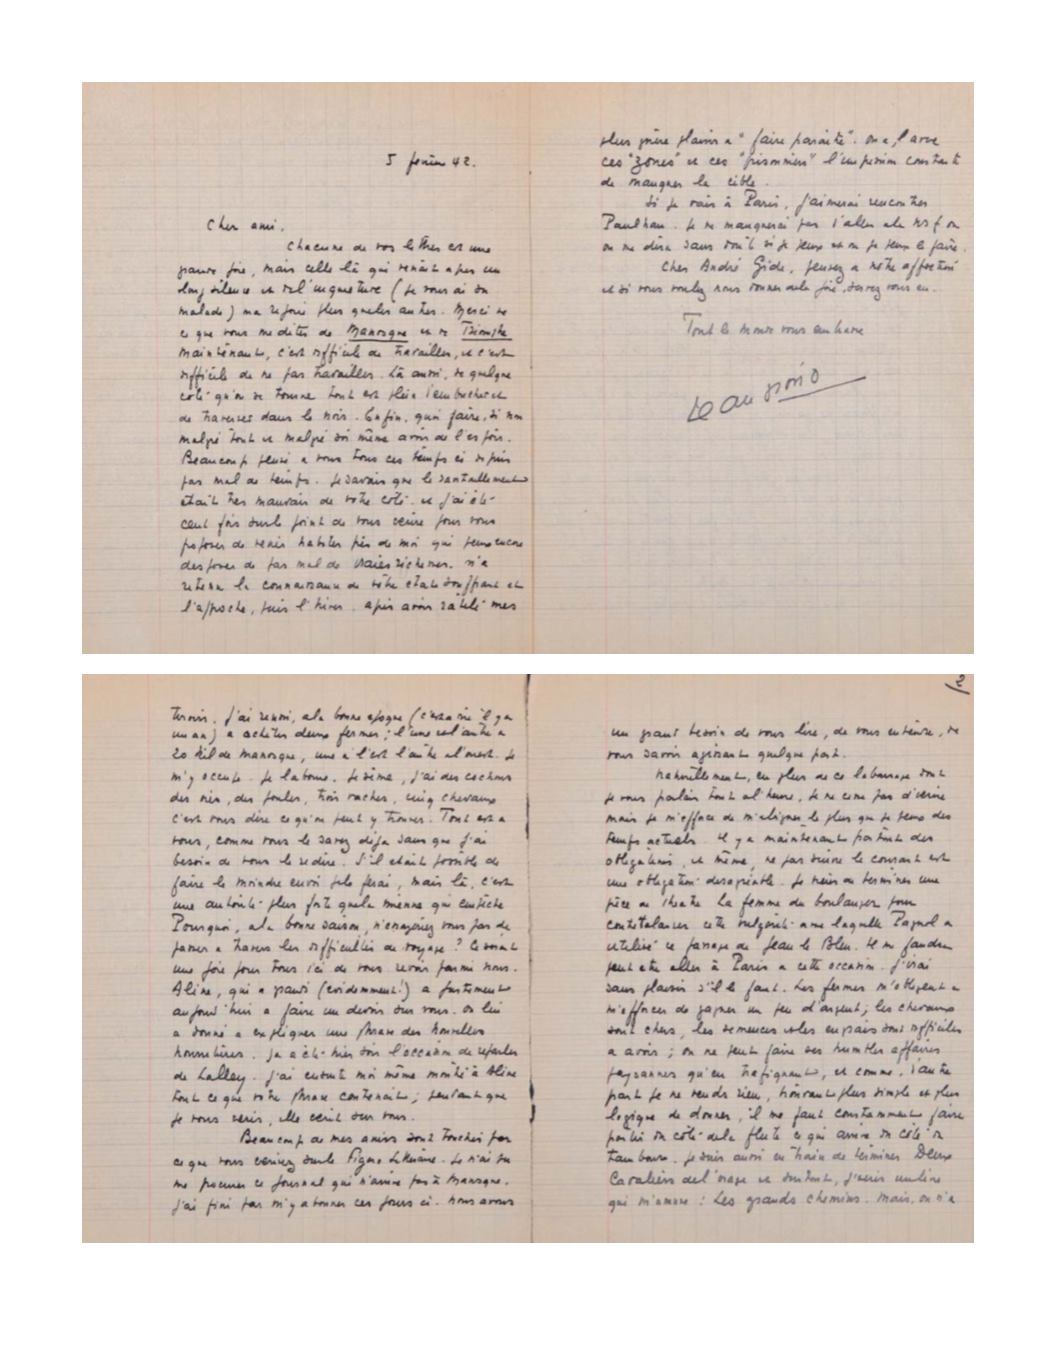 5 février 42.
Cher ami.
Chacune de vos lettres est une
grande joie, mais celle là qui venait apres un
long silence et de l'inquietude (je vous ai su
malade) m'a rejoui plus que les autres. Merci de
ce que vous me dites de Manosque et de Triomphe
maintenant, c'est difficile de travailler, et c'est
difficile de ne pas travailler. Là aussi, de quelque
coté qu'on se tourne tout est plein d'embuches et
de traverses dans le noir. Enfin, quoi faire, si non
malgré tout et malgré soi même avoir de l'espoir.
Beaucoup pensé a vous tous ces temps ci depuis
pas mal de temps. Je savais que le ravitaillement
était tres mauvais de votre coté. et j'ai été
cent fois sur le point de vous ecrire pour vous
proposer de venir habiter près de moi qui peux encore
disposer de pas mal de vraies richesses. m'a
retenu la connaissance de votre etat souffrant et
l'approche, puis l'hiver. apres avoir ratelé mes
tiroirs, j'ai reussi, a la bonne epoque (c'est a dire il y a
un an) a acheter deux fermes; l'une est l'autre a
20 kil de Manosque, une a l'est l'autre al'ouest. Je
m'y occupe. Je laboure. Je sème, j'ai des cochons
des oies, des poules, trois vaches, cinq chevaux
c'est vous dire ce qu'on peut y trouver. Tout est a
vous, comme vous le savez deja sans que j'ai
besoin de vous le redire. S'il etait possible de
faire le moindre envoi je le ferai, mais là, c'est
une autorité plus forte que la mienne qui empêche
Pourquoi, a la bonne saison, n'essayeriez vous pas de
passer a travers les difficultés de voyage? Ce serait
une joie pour tous ici de vous revoir parmi nous.
Aline, qui a grandi (evidemment!) a justement
aujourd'hui a faire un devoir sur vous. On lui
a donné a expliquer une phrase des Nouvelles
nourritures. Ça a été hier soir l'occasion de reparler
de Lalley. J'ai ensuite moi même montré à Aline
tout ce que votre phrase contenait; pendant que
je vous ecris, elle ecrit sur vous.
Beaucoup de mes amis sont touchés par
ce que vous ecrivez sur le Figaro Littéraire. Je n'ai pu
me procurer ce journal qui n'arrive pas à Manosque.
J'ai fini par m'y abonner ces jours ci. nous avons
2
un grand besoin de vous lire, de vous entendre, de
vous savoir agissant quelque part.
Naturellement, en plus de ce labourage dont
je vous parlais tout a l'heure, je ne cesse pas d'ecrire
mais je m'efforce de m'aligner le plus que je peux des
temps actuels. Il y a maintenant partout des
obligations, et même, ne pas suivre le courant est
une obligation desagréable. Je viens de terminer une
pièce de theatre La femme du boulanger pour
contrebalancer cette vulgarité avec laquelle Pagnol a
utilisé ce passage de Jean le Bleu. Il me faudra
peut etre aller à Paris a cette occasion. J'irai
sans plaisir s'il le faut. Les fermes m'obligent a
m'efforcer de gagner un peu d'argent; les chevaux
sont chers, les semences et les engrais sont difficiles
a avoir; on ne peut faire ses humbles affaires
paysannes qu'en trafiquant, et comme, d'autre
part je ne vends rien, trouvant plus simple et plus
logique de donner, il me faut constamment faire
partir du coté de la flute ce qui arrive du coté du
tambour. Je suis aussi en train de terminer Deux
Cavaliers de l'orage et surtout, j'ecris un livre
qui m'amuse: Les grands chemins. Mais, on n'a
plus guère plaisir a "faire paraitre". on a, avec
ces "zones" et ces "prisonniers" l'impression constante
de manquer la cible.
Si je vais à Paris, j'aimerai rencontrer
Paulhan. Je ne manquerai pas d'aller a la nrf ou
on me dira sans doute si je peux et ou je peux le faire.
Cher André Gide, pensez a notre affection
et si vous voulez nous donner de la joie, servez vous en.
Tout le monde vous embrasse
Jean Giono